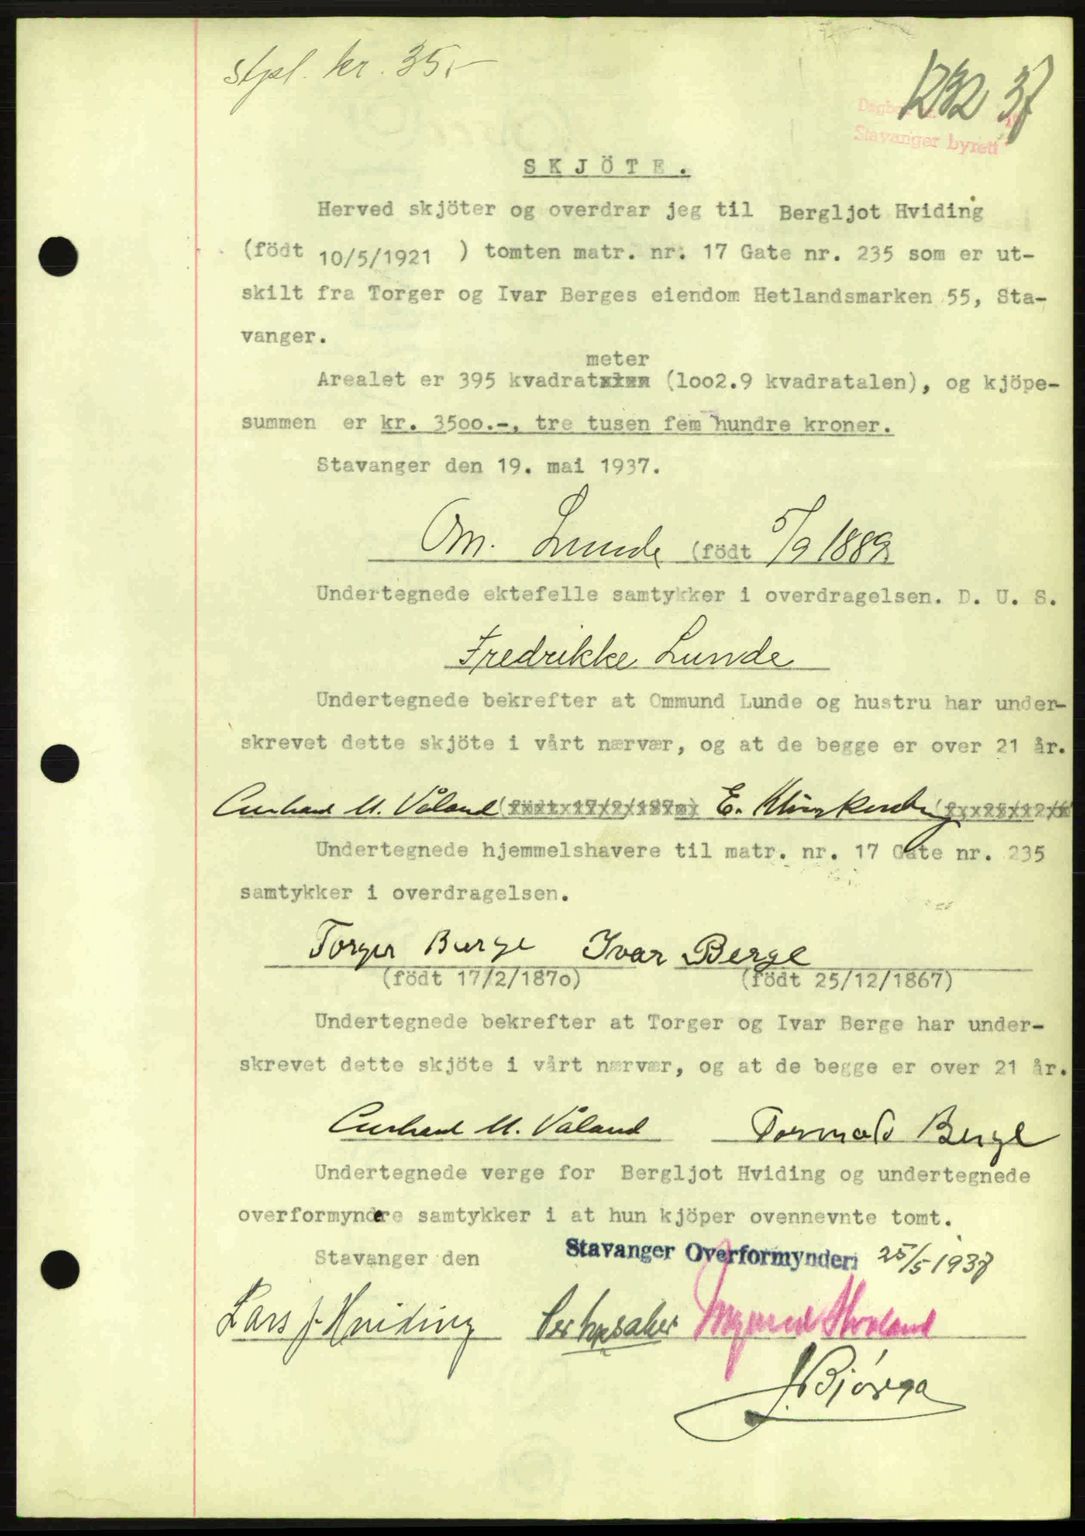 stpl. kr. 35,-
1232 37
Stavanger byrett
SKJÖTE.
Herved skjöter og overdrar jeg til Bergljot Hviding
(födt 10/5/1921 ) tomten matr. nr. 17 Gate nr. 235 som er ut-
skilt fra Torger og Ivar Berges eiendom Hetlandsmarken 55, Sta-
vanger.
meter
Arealet er 395 kvadrat (loo2.9 kvadratalen), og kjöpe-
summen er kr. 35oo.-, tre tusen fem hundre kroner.
Stavanger den 19. mai 1937.
Om. Lunde (födt 5/9 1889
Undertegnede ektefelle samtykker i overdragelsen. D. U. S.
Fredrikke Lunde
Undertegnede bekrefter at Ommund Lunde og hustru har under-
skrevet dette skjöte i vårt nærvær, og at de begge er over 21 år.
M. Våland (födt 17/2/187o) E.
Undertegnede hjemmelshavere til matr. nr. 17 Gate nr. 235
samtykker i overdragelsen.
Torger Berge Ivar Berge
(födt 17/2/187o) (födt 25/12/1867)
Undertegnede bekrefter at Torger og Ivar Berge har under-
skrevet dette skjöte i vårt nærvær, og at de begge er over 21 år.
M. Våland Tormod Berge
Undertegnede verge for Bergljot Hviding og undertegnede
overformyndere samtykker i at hun kjöper ovennevnte tomt.
Stavanger den Stavanger Overformynderi 25/5 1937
Lars J. Hviding
J. Bjórga